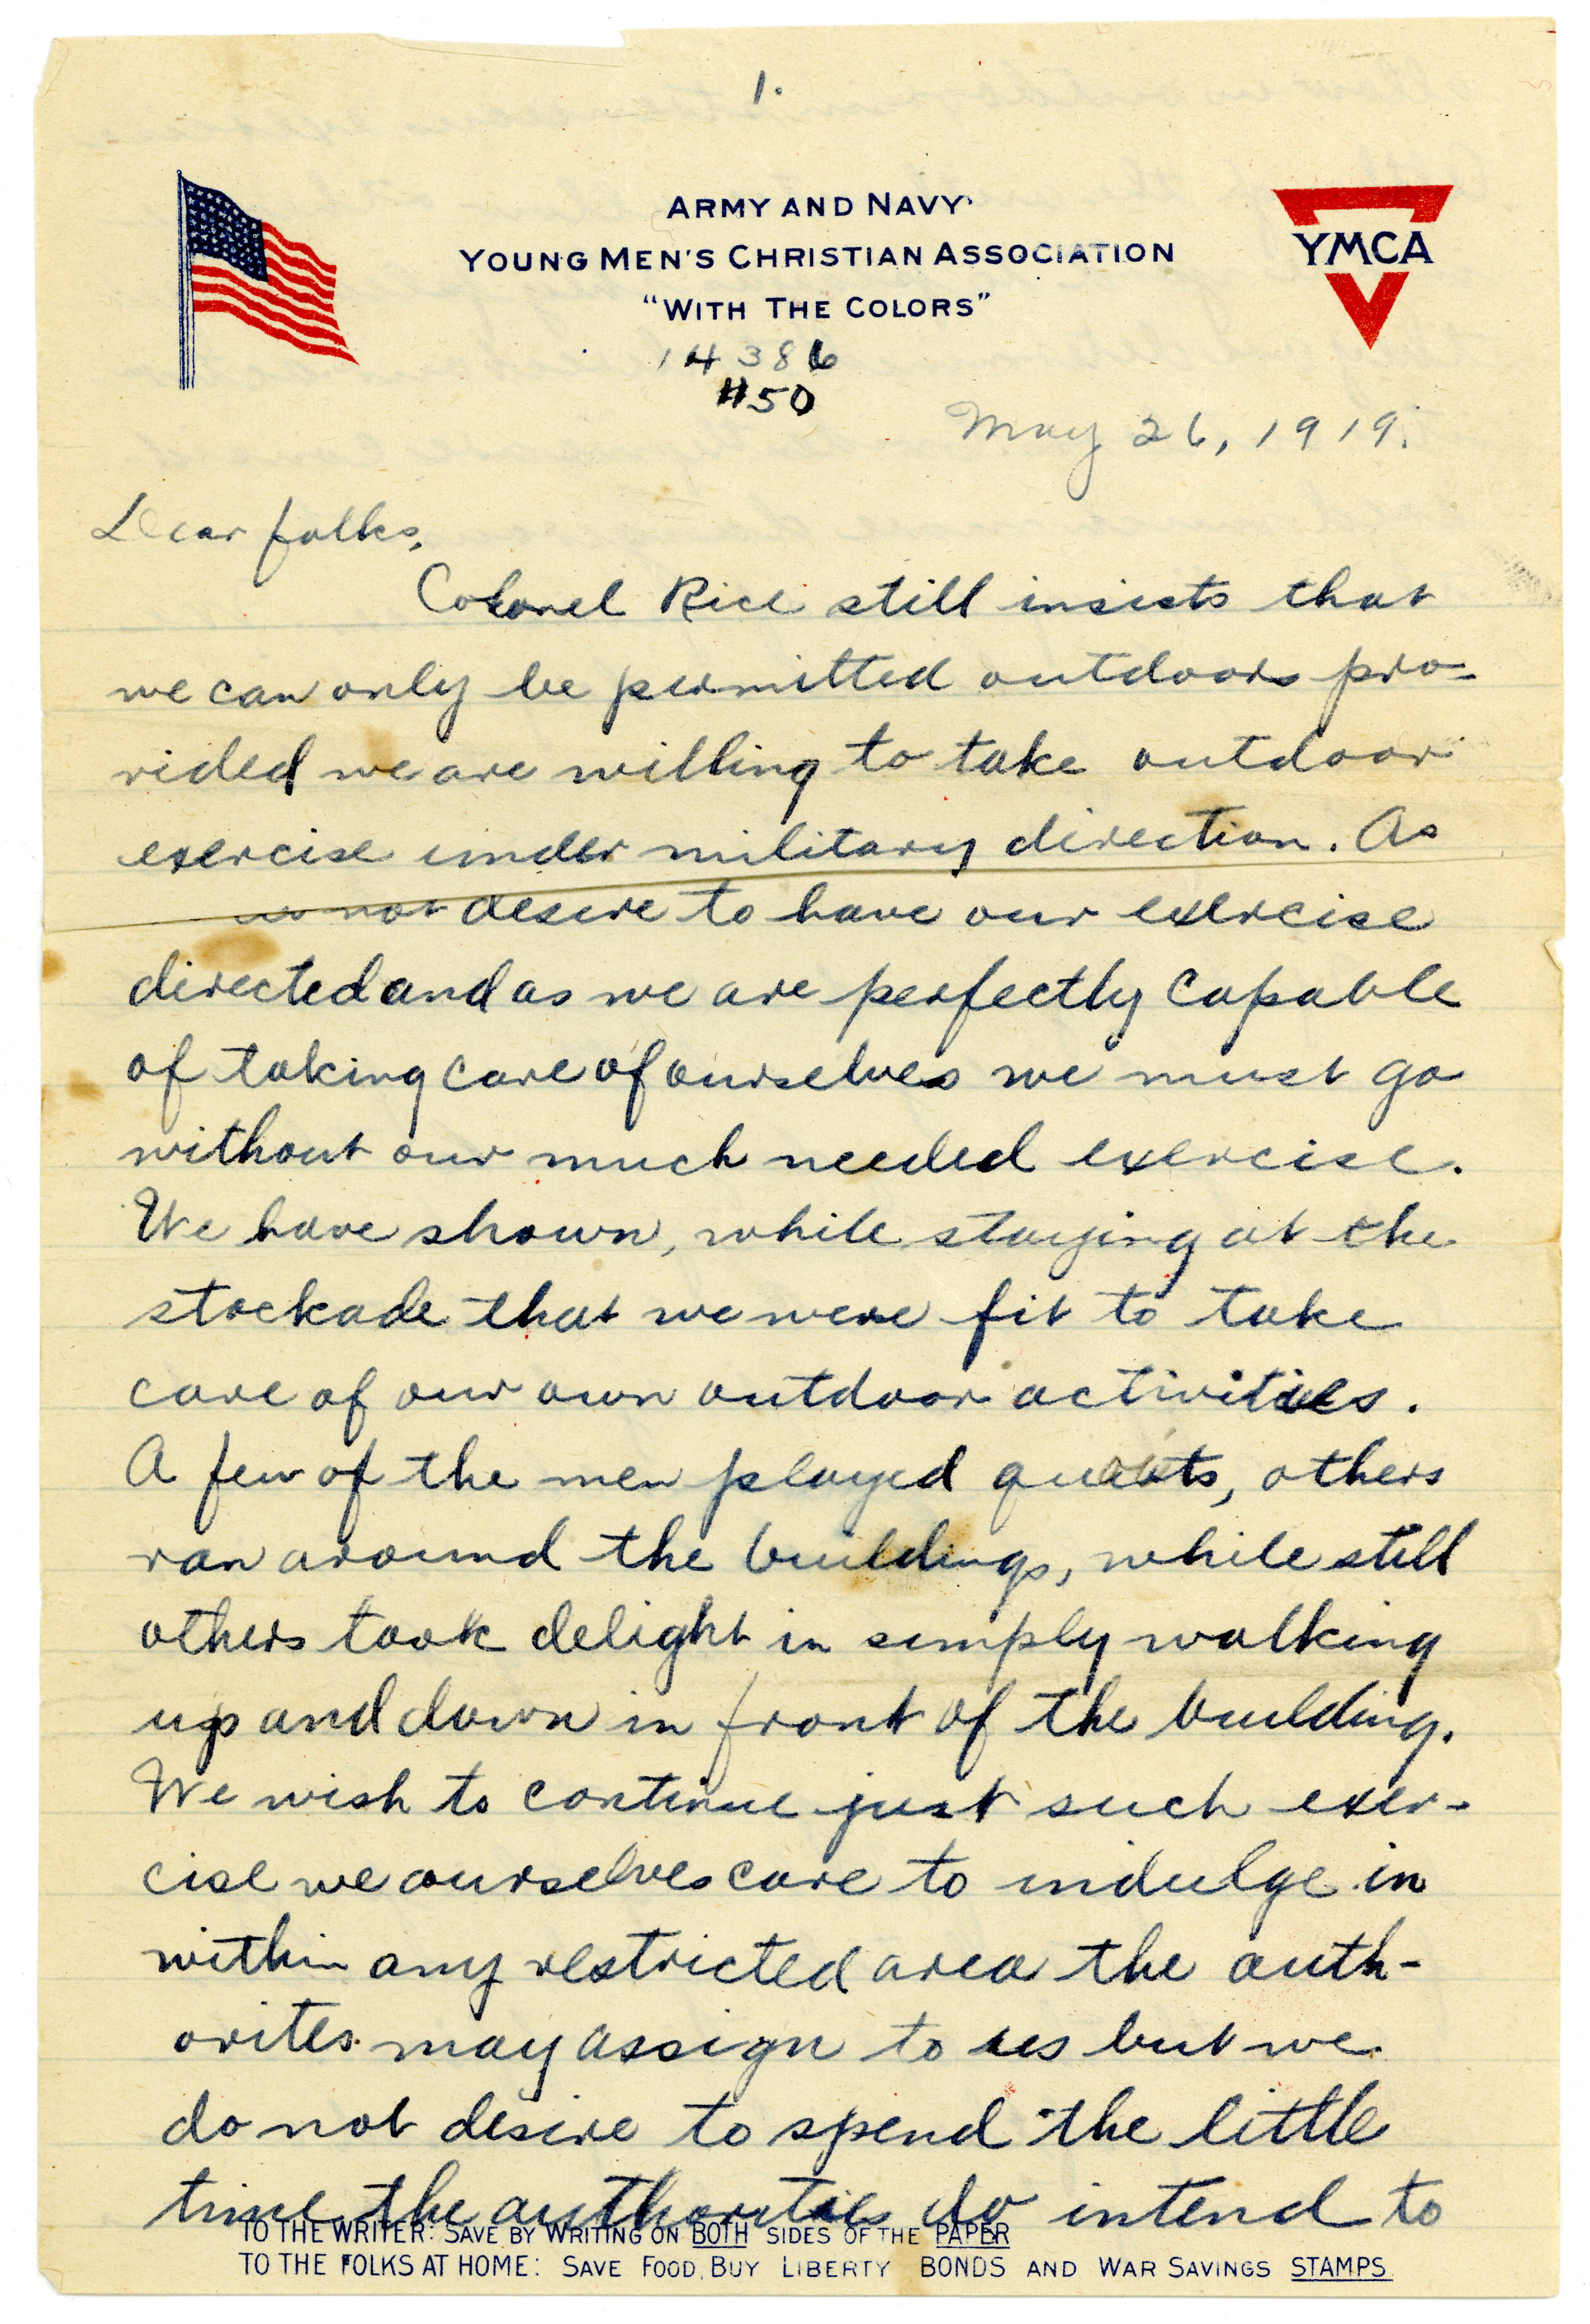 1.
ARMY AND NAVY
YOUNG MEN'S CHRISTIAN ASSOCIATION
"WITH THE COLORS"
YMCA
14386
#50
May 26, 1919.
Dear folks,
Colonel Rice still insists that
we can only be permitted outdoors pro-
vided we are willing to take outdoor
exercise under military direction. As
do not desire to have our exercise
directed and as we are perfectly capable
of taking care of ourselves we must go
without our much needed exercise.
We have shown, while staying at the
stockade that we were fit to take
care of our own outdoor activities.
A few of the men played quoits, others
ran around the buildings, while still
others took delight in simply walking
up and down in front of the building.
We wish to continue just such exer-
cise we ourselves care to indulge in
within any restricted area the auth-
orites may assign to us but we
do not desire to spend the little
time the authorities do intend to
TO THE WRITER: SAVE BY WRITING ON BOTH SIDES OF THE PAPER
TO THE FOLKS AT HOME: SAVE FOOD, BUY LIBERTY BONDS AND WAR SAVINGS STAMPS